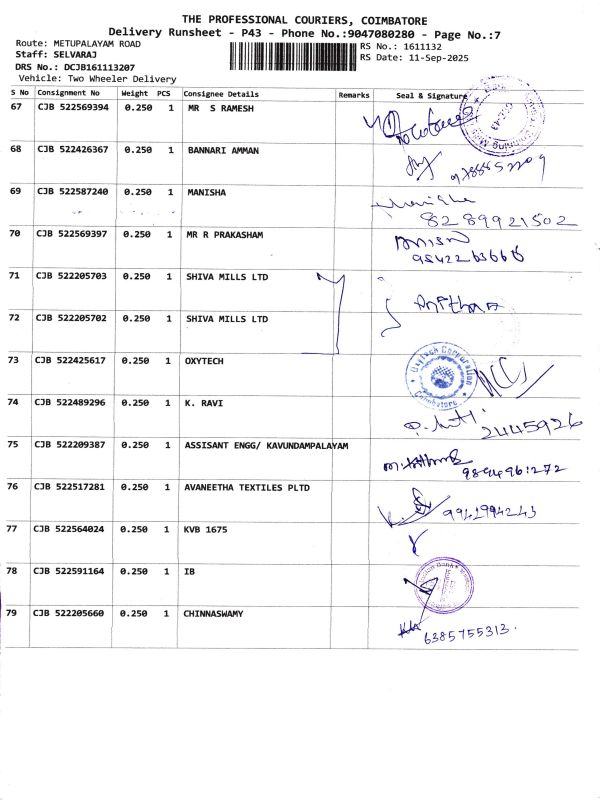 THE PROFESSIONAL COURIERS, COIMBATORE
Delivery Runsheet - P43 - Phone No.:9047080280 - Page No.:7
Route: METUPALAYAM ROAD
RS No.: 1611132
Staff: SELVARAJ
RS Date: 11-Sep-2025
DRS No.: DCJB161113207
Vehicle: Two Wheeler Delivery
S No Consignment No Weight PCS Consignee Details Remarks Seal & Signature
67 CJB 522569394 0.250 1 MR S RAMESH
68 CJB 522426367 0.250 1 BANNARI AMMAN
69 CJB 522587240 0.250 1 MANISHA
Manisha
8289921502
70 CJB 522569397 0.250 1 MR R PRAKASHAM
71 CJB 522205703 0.250 1 SHIVA MILLS LTD
72 CJB 522205702 0.250 1 SHIVA MILLS LTD
73 CJB 522425617 0.250 1 OXYTECH
Oxytech Corporation
Coimbatore
74 CJB 522489296 0.250 1 K. RAVI
2445926
75 CJB 522209387 0.250 1 ASSISANT ENGG/ KAVUNDAMPALAYAM
76 CJB 522517281 0.250 1 AVANEETHA TEXTILES PLTD
77 CJB 522564024 0.250 1 KVB 1675
78 CJB 522591164 0.250 1 IB
79 CJB 522205660 0.250 1 CHINNASWAMY
6385755313.